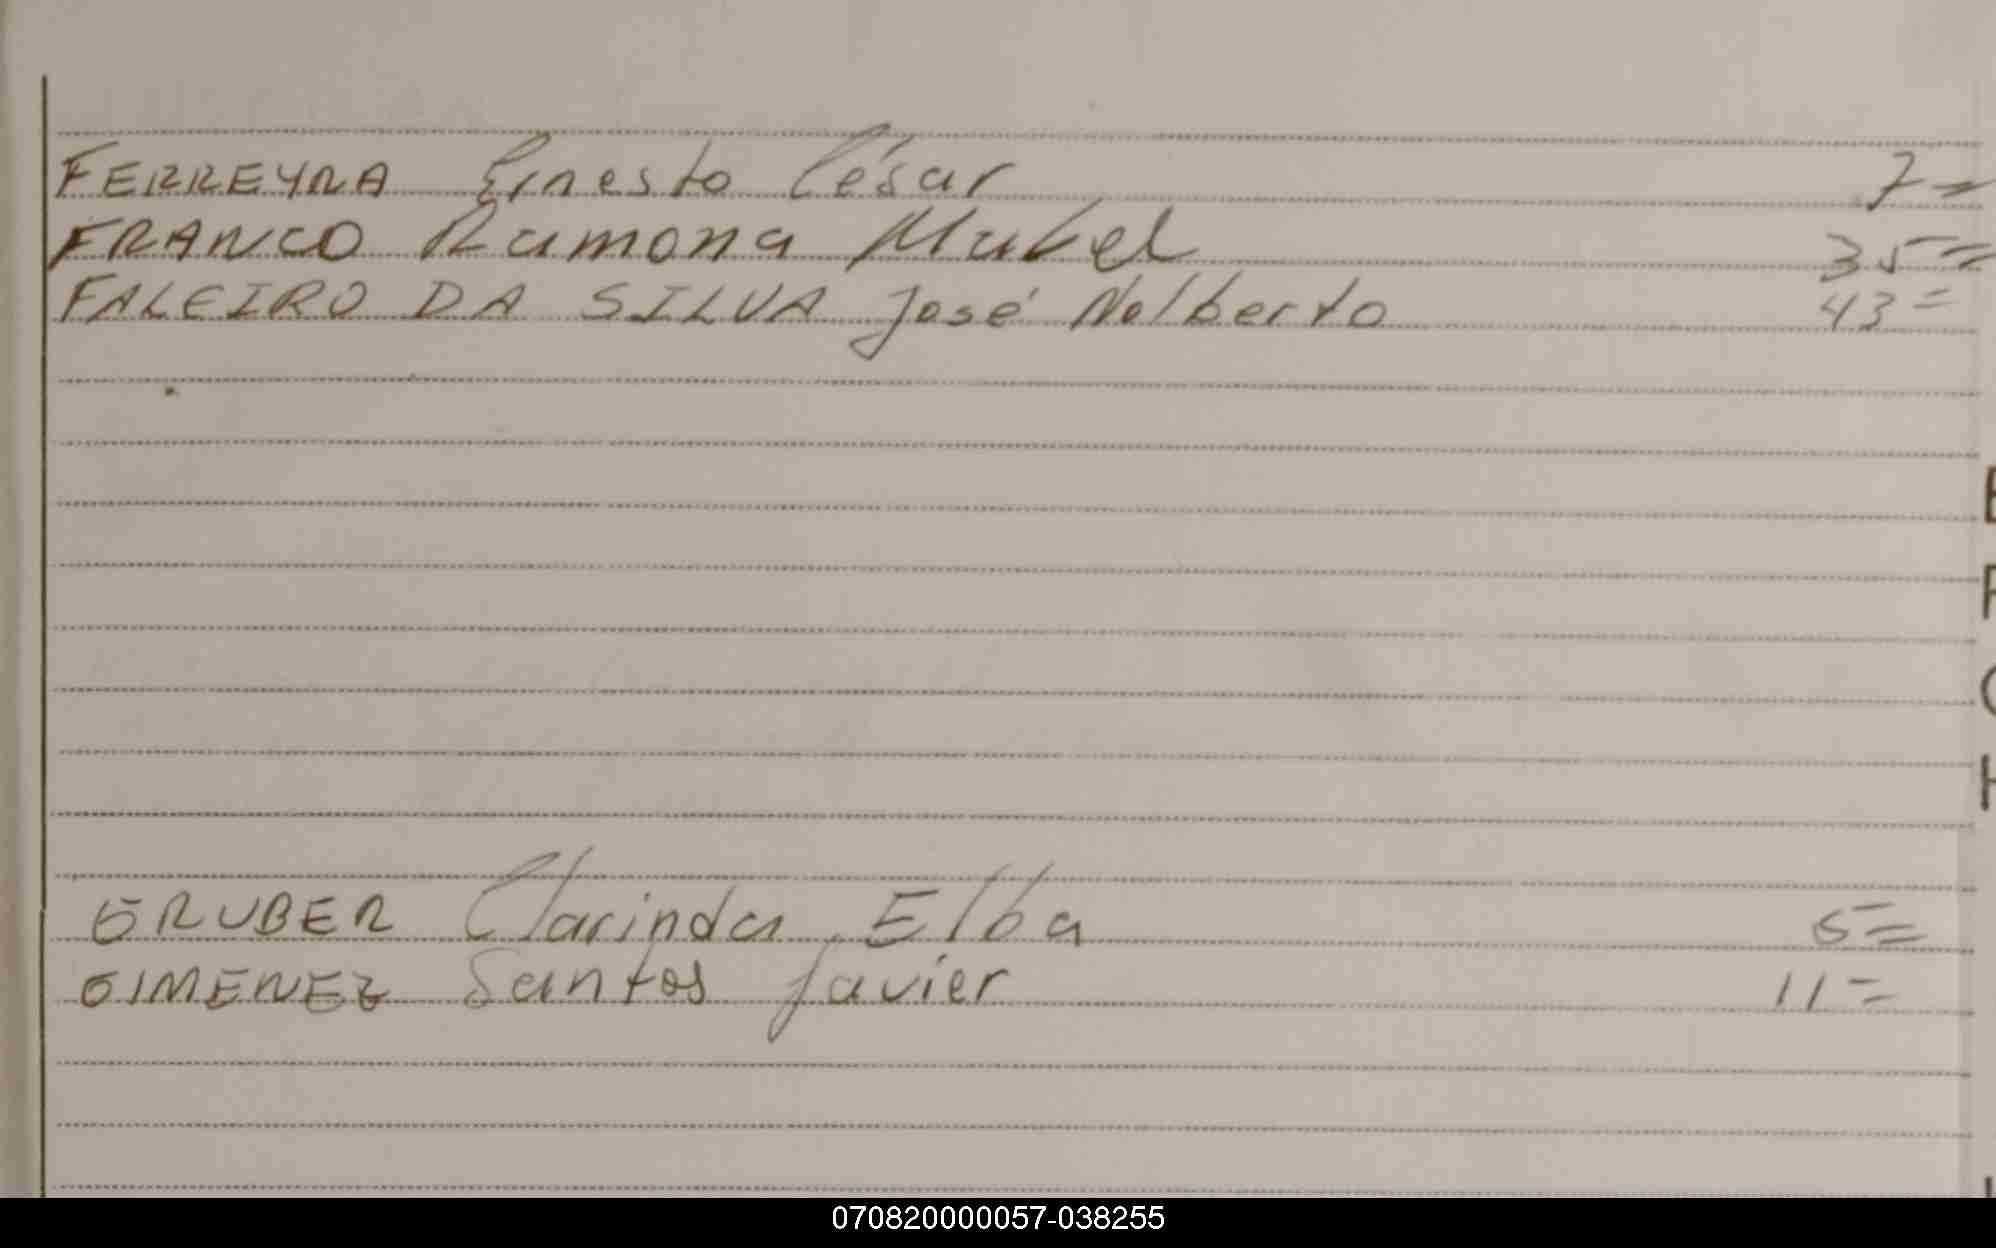 FERREYRA Ernesto César 7=
FRANCO Ramona Mabel 35=
FALEIRO DA SILVA José Nolberto 43=
GRUBER Clarinda Elba 5=
GIMENEZ Santos Javier 11=
070820000057-038255